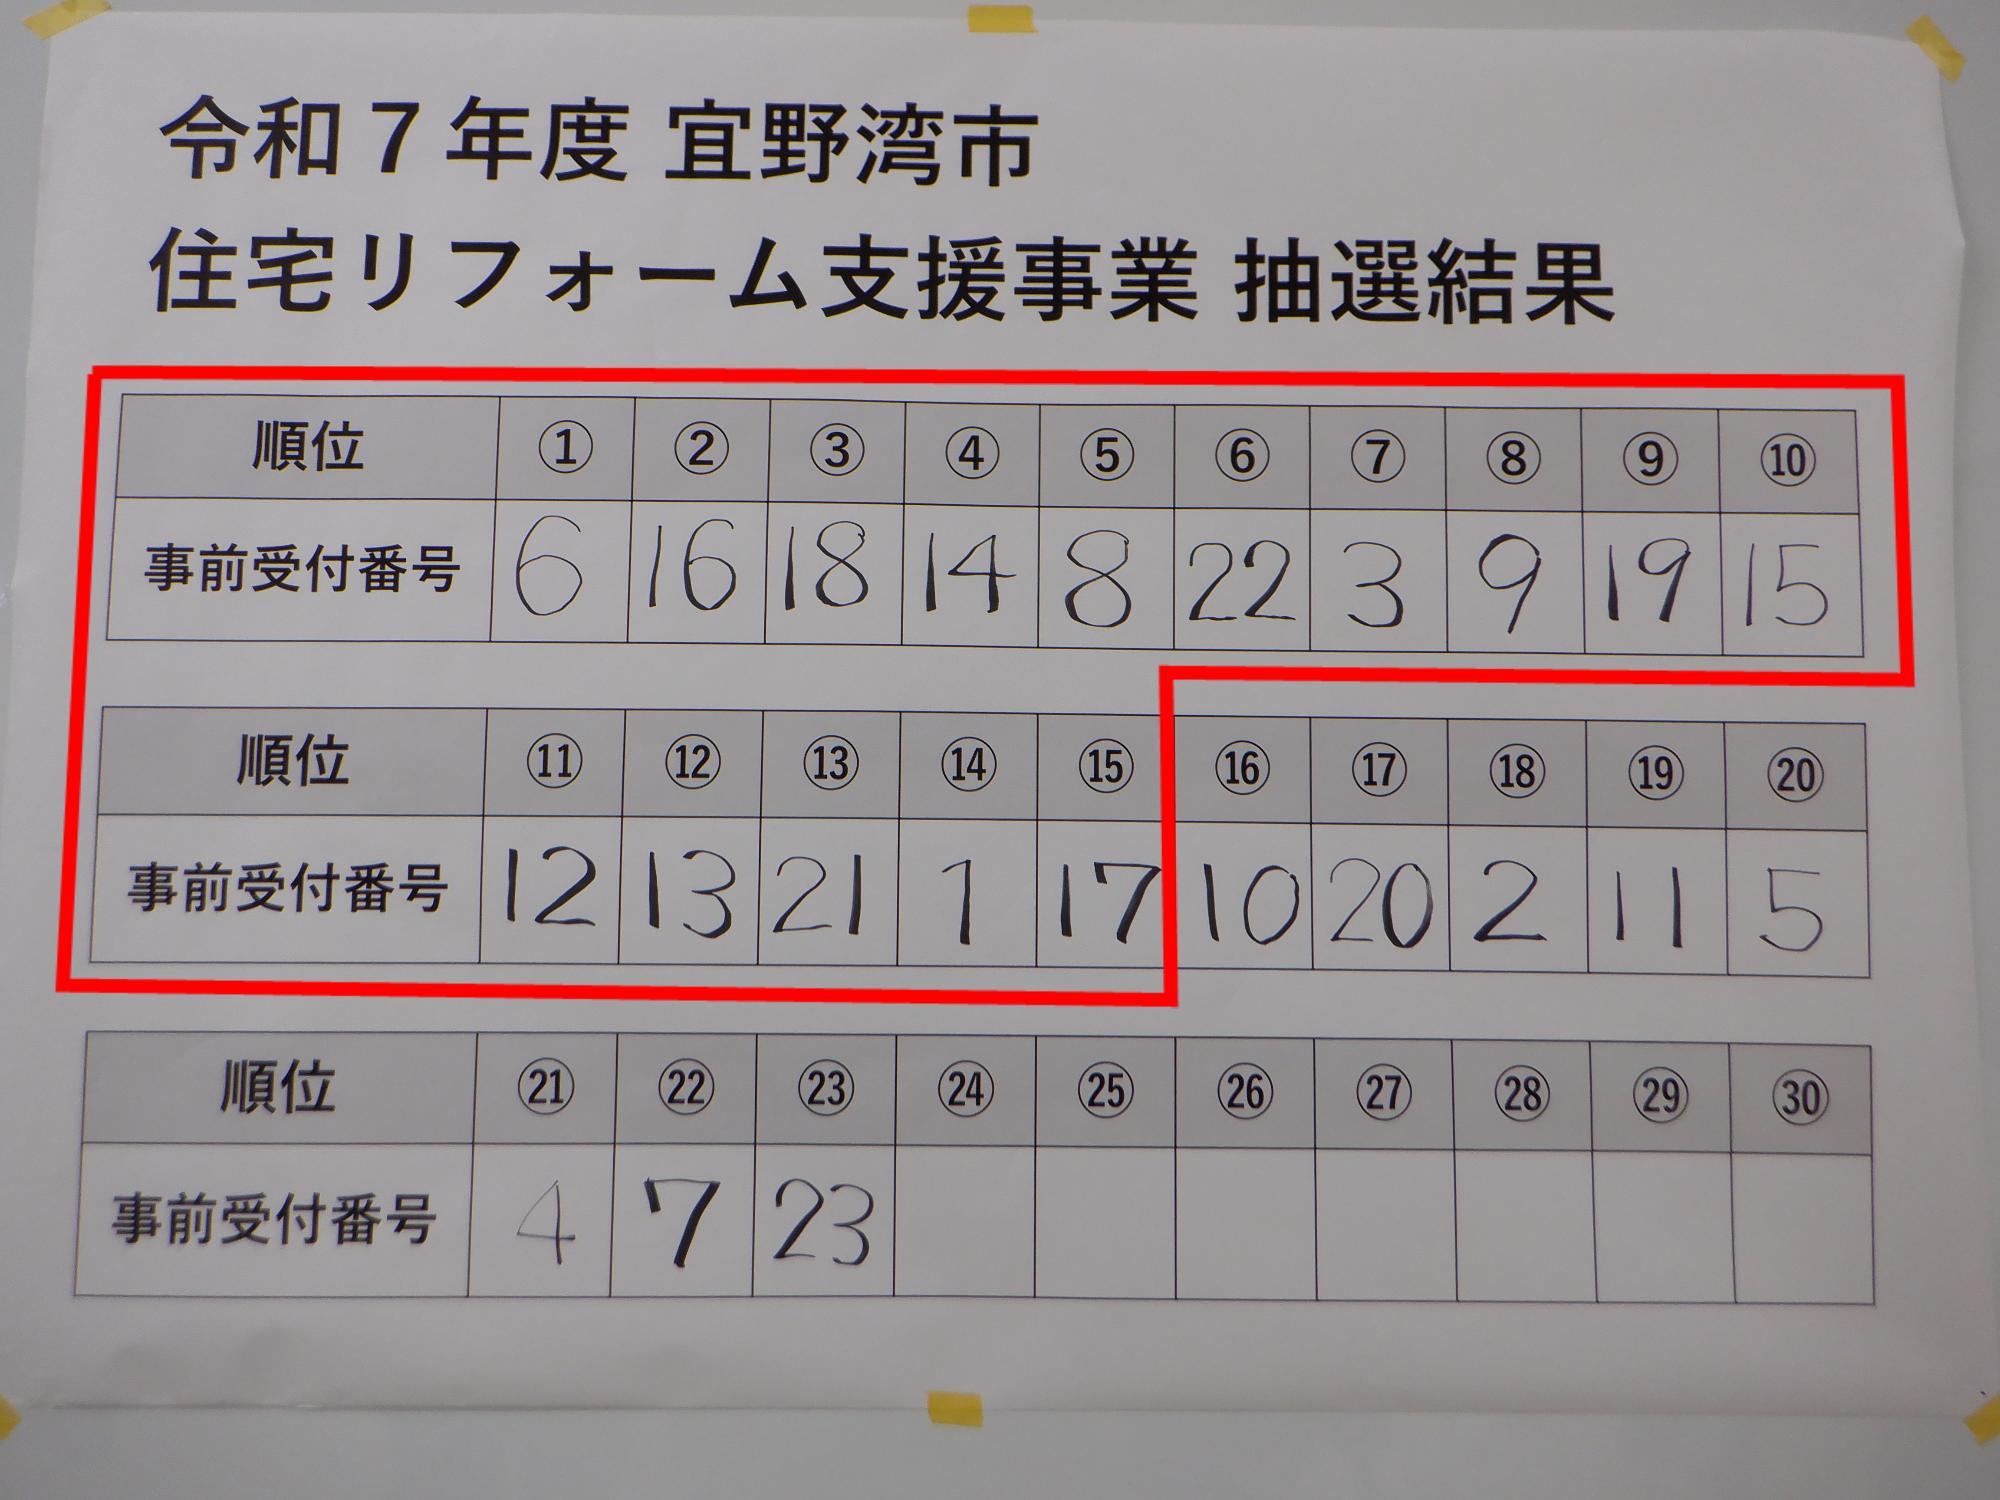 令和7年度 宜野湾市
住宅リフォーム支援事業 抽選結果
順位 ① ② ③ ④ ⑤ ⑥ ⑦ ⑧ ⑨ ⑩
事前受付番号 6 16 18 14 8 22 3 9 19 15
順位 ⑪ ⑫ ⑬ ⑭ ⑮ ⑯ ⑰ ⑱ ⑲ ⑳
事前受付番号 12 13 21 1 17 10 20 2 11 5
順位 ㉑ ㉒ ㉓ ㉔ ㉕ ㉖ ㉗ ㉘ ㉙ ㉚
事前受付番号 4 7 23